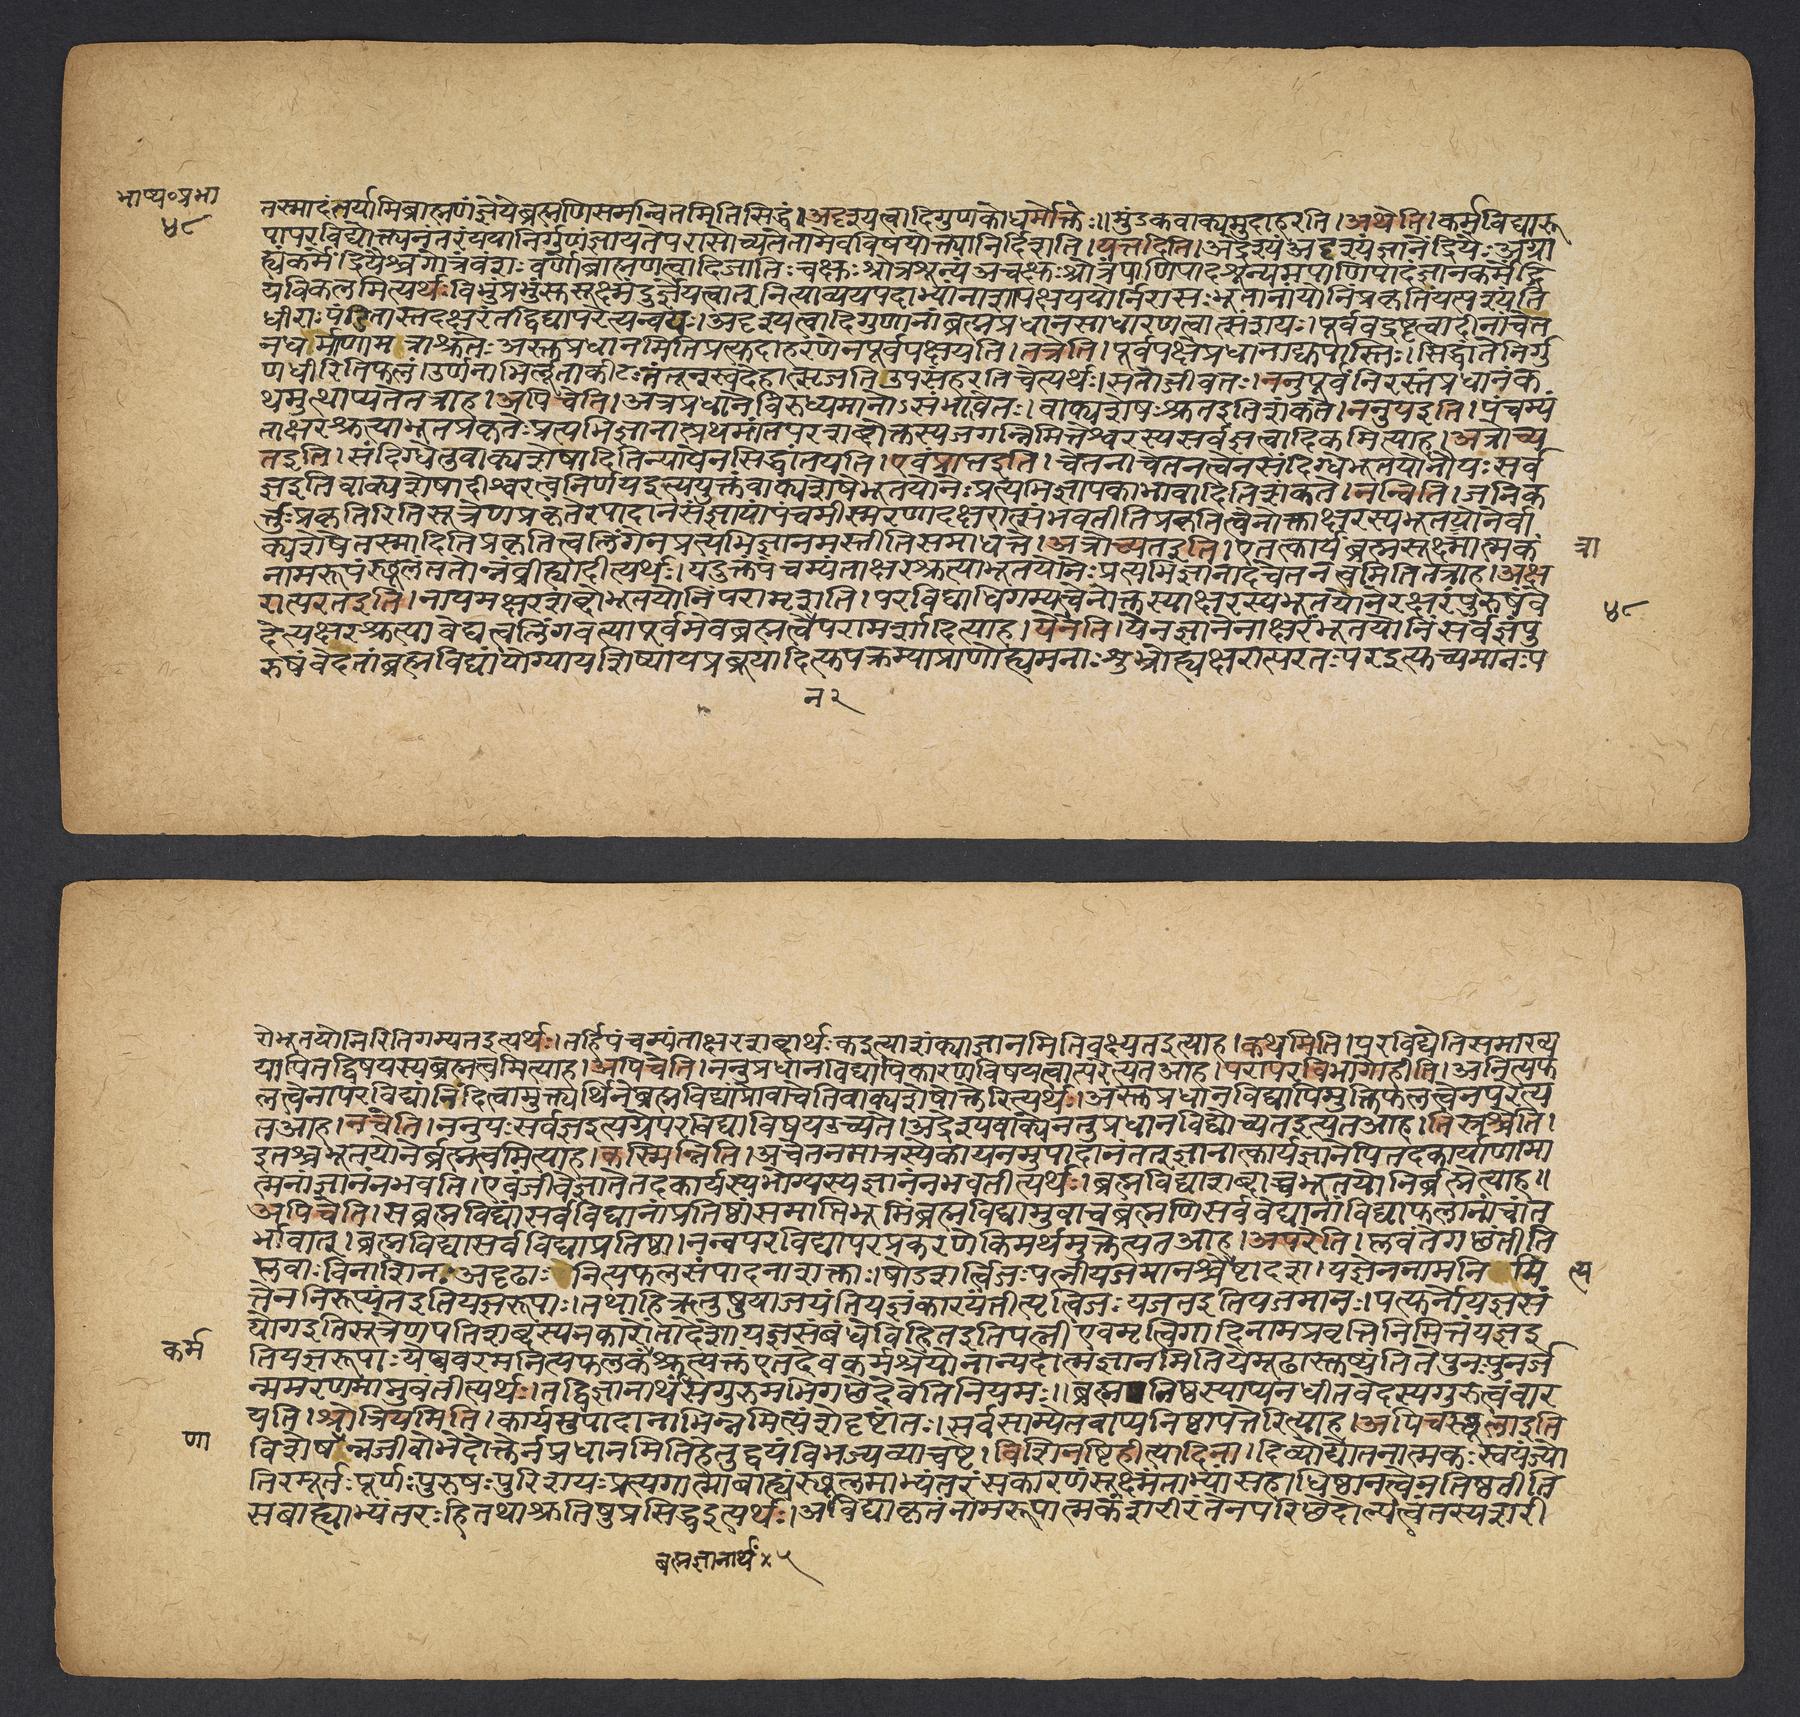 भाष्य॰प्रभा
४८
तस्मादंतर्यामिब्राह्मणंज्ञेयेब्रह्मणिसमन्वितमितिसिद्धं। अदृश्यत्वादिगुणकोधर्मोक्तेः॥ मुंडकवाक्यमुदाहरति। अथेति। कर्मविद्यारू
पापरविद्योक्त्यनंतरंययानिर्गुणंज्ञायतेपरासोच्यतेतामेवविषयोक्त्यानिर्दिशति। यत्तदिति। अद्रेश्यंअदृश्यंज्ञानेंद्रियैः अग्रा
ह्यंकर्मेंद्रियैश्चगोत्रंवंशः वर्णोब्राह्मणत्वादिजातिः चक्षुःश्रोत्रशून्यंअचक्षुःश्रोत्रंपाणिपादशून्यमपाणिपादंज्ञानकर्मेंद्रि
यविकलमित्यर्थः विभुंप्रभुंसुसूक्ष्मंदुर्ज्ञेयत्वात् नित्याव्ययपदाभ्यांनाशापक्षययोर्निरासः भूतानांयोनिंप्रकृतिंयत्पश्यंति
धीराःपंडितास्तदक्षरंतद्विद्यापरेत्यन्वयः। अदृश्यत्वादिगुणानांब्रह्मप्रधानसाधारणत्वात्संशयः। पूर्ववद्द्रष्टृत्वादीनांचेत
नधर्माणामत्राश्रुतेः अस्तुप्रधानमितिप्रत्युदाहरणेनपूर्वपक्षयति। तत्रेति। पूर्वपक्षेप्रधानाद्युपास्तिः। सिद्धांतेनिर्गु
णधीरितिफलं। उर्णनाभिर्लूताकीटः तंतून्स्वदेहात्सृजति उपसंहरतिचेत्यर्थः। सतोजीवतः। ननुपूर्वंनिरस्तंप्रधानंक
थमुत्थाप्यतेतत्राह। अपिचेति। अत्रप्रधानेविरुध्यमानोऽसंभावितः। वाक्यशेषःश्रुतइतिशंकते। ननुयइति। पंचम्यं
ताक्षरश्रुत्याभूतप्रकृतेःप्रत्यभिज्ञानात्प्रथमांतपरशब्दोक्तस्यजगन्निमित्तेश्वरस्यसर्वज्ञत्वादिकमित्याह। अत्रोच्य
तइति। संदिग्धेतुवाक्यशेषादितिन्यायेनसिद्धांतयति। एवंप्राप्तइति। चेतनाचेतनत्वेनसंदिग्धेभूतयोनौयःसर्व
ज्ञइतिवाक्यशेषादीश्वरत्वनिर्णयइत्ययुक्तंवाक्यशेषेभूतयोनेःप्रत्यभिज्ञापकाभावादितिशंकते। नन्विति। जनिक
र्त्तुःप्रकृतिरितिसूत्रेणप्रकृतेरपादानसंज्ञायांपंचमीस्मरणादक्षरात्संभवतीतिप्रकृतित्वेनोक्ताक्षरस्यभूतयोनेर्वा
क्यशेषेतस्मादितिप्रकृतित्वलिंगेनप्रत्यभिज्ञानमस्तीतिसमाधत्ते। अत्रोच्यतइति। एतत्कार्यंब्रह्मसूक्ष्मात्मकं
त्रा
नामरूपंस्थूलंततोन्नंव्रीह्यादीत्यर्थः। यदुक्तंपंचम्यंताक्षरश्रुत्याभूतयोनेःप्रत्यभिज्ञानादचेतनत्वमितितत्राह। अक्ष
रात्परतइति। नायमक्षरशब्दोभूतयोनिंपरामृशति। परविद्याधिगम्यत्वेनोक्तस्याक्षरस्यभूतयोनेरक्षरंपुरुषंवे
४८
देत्यक्षरश्रुत्यावेद्यत्वलिंगवत्यापूर्वमेवब्रह्मत्वेपरामर्शादित्याह। येनेति। येनज्ञानेनाक्षरंभूतयोनिंसर्वज्ञंपु
रुषंवेदतांब्रह्मविद्यांयोग्यायशिष्यायप्रब्रूयादित्युपक्रम्याप्राणोह्यमनाःशुभ्रोह्यक्षरात्परतःपरइत्युच्यमानःप
न २
रोभूतयोनिरितिगम्यतइत्यर्थः। तर्हिपंचम्यंताक्षरशब्दार्थःकइत्याशंक्याज्ञानमितिवक्ष्यतइत्याह। कथमिति। परविद्येतिसमाख्य
यापितद्विषयस्यब्रह्मत्वमित्याह। अपिचेति। ननुप्रधानविद्यापिकारणविषयत्वात्परेत्यतआह। परापरविभागोहीति। अनित्यफ
लत्वेनापरविद्यांनिंदित्वामुक्त्यर्थिनेब्रह्मविद्यांप्रोवाचेतिवाक्यशेषोक्तेरित्यर्थः। अस्तुप्रधानविद्यापिमुक्तिफलत्वेनपरेत्य
तआह। नचेति। ननुयःसर्वज्ञइत्यग्रेपरविद्याविषयउच्यते। अद्रेश्यवाक्येनतुप्रधानविद्योच्यतइत्यतआह। तिस्रश्चेति।
इतश्चभूतयोनेर्ब्रह्मत्वमित्याह। कस्मिन्निति। अचेतनमात्रस्यैकायनमुपादानंतत्ज्ञानात्कार्यज्ञानेपितदकार्याणामा
त्मनांज्ञानंनभवति। एवंजीवेज्ञातेतदकार्यस्यभोग्यस्यज्ञानंनभवतीत्यर्थः। ब्रह्मविद्याशब्दाच्चभूतयोनिर्ब्रह्मेत्याह॥
अपिचेति। सब्रह्मविद्यांसर्वविद्यानांप्रतिष्ठांसमाप्तिभूमिंब्रह्मविद्यामुवाचब्रह्मणिसर्ववेद्यानांविद्याफलानांचांत
र्भावात्। ब्रह्मविद्यासर्वविद्याप्रतिष्ठा। नन्वपरविद्यापरप्रकरणेकिमर्थमुक्तेत्यतआह। अपरेति। प्लवंतेगछंतीति
प्लवाःविनाशिनः अदृढाः नित्यफलसंपादनाशक्ताः। षोडशर्त्विजःपत्नीयजमानश्चेष्टादश। यज्ञेननामनिमि
त्य
त्तेननिरूप्यंतइतियज्ञरूपाः। तथाहिऋतुषुयाजयंतियज्ञंकारयंतीत्यृत्विजः यजतइतियजमानः। पत्युर्नोयज्ञसं
योगइतिसूत्रेणपतिशब्दस्यनकारांतादेशोयज्ञसंबंधेविहितइतिपत्नी एवमृत्विगादिनामप्रवृत्तिनिमित्तंयज्ञइ
कर्म
तियज्ञरूपाःयेष्ववरमनित्यफलकंश्रुत्युक्तं एतदेवकर्मश्रेयोनान्यदात्मज्ञानमितियेमूढास्तुष्यंतितेपुनःपुनर्ज
न्ममरणमाप्नुवंतीत्यर्थः। तद्विज्ञानार्थंसगुरुमभिगछेदेवेतिनियमः॥ ब्रह्मनिष्ठस्याप्यनधीतवेदस्यगुरुत्वंवार
यति। श्रोत्रियमिति। कार्यमुपादानाभिन्नमित्यंशेदृष्टांतः। सर्वसाम्येतवाप्यनिष्ठापत्तेरित्याह। अपिचस्थूलाइति
णा
विशेषणेन्नजीवोभेदोक्तेर्नप्रधानमितिहेतुद्वयंविभज्यव्याचष्टे। विशिनष्टिहीत्यादिना। दिव्योद्योतनात्मकःस्वयंज्यो
तिरमूर्तःपूर्णःपुरुषःपुरिशयःप्रत्यगात्माबाह्यंस्थूलमाभ्यंतरंसकारणंसूक्ष्मंताभ्यांसहाधिष्ठानत्वेनतिष्ठतीति
सबाह्याभ्यंतरःहितथाश्रुतिषुप्रसिद्धइत्यर्थः। अविद्याकृतंनामरूपात्मकंशरीरंतेनपरिछेदोल्पत्वंतस्यशरी
ब्रह्मज्ञानार्थं x ५